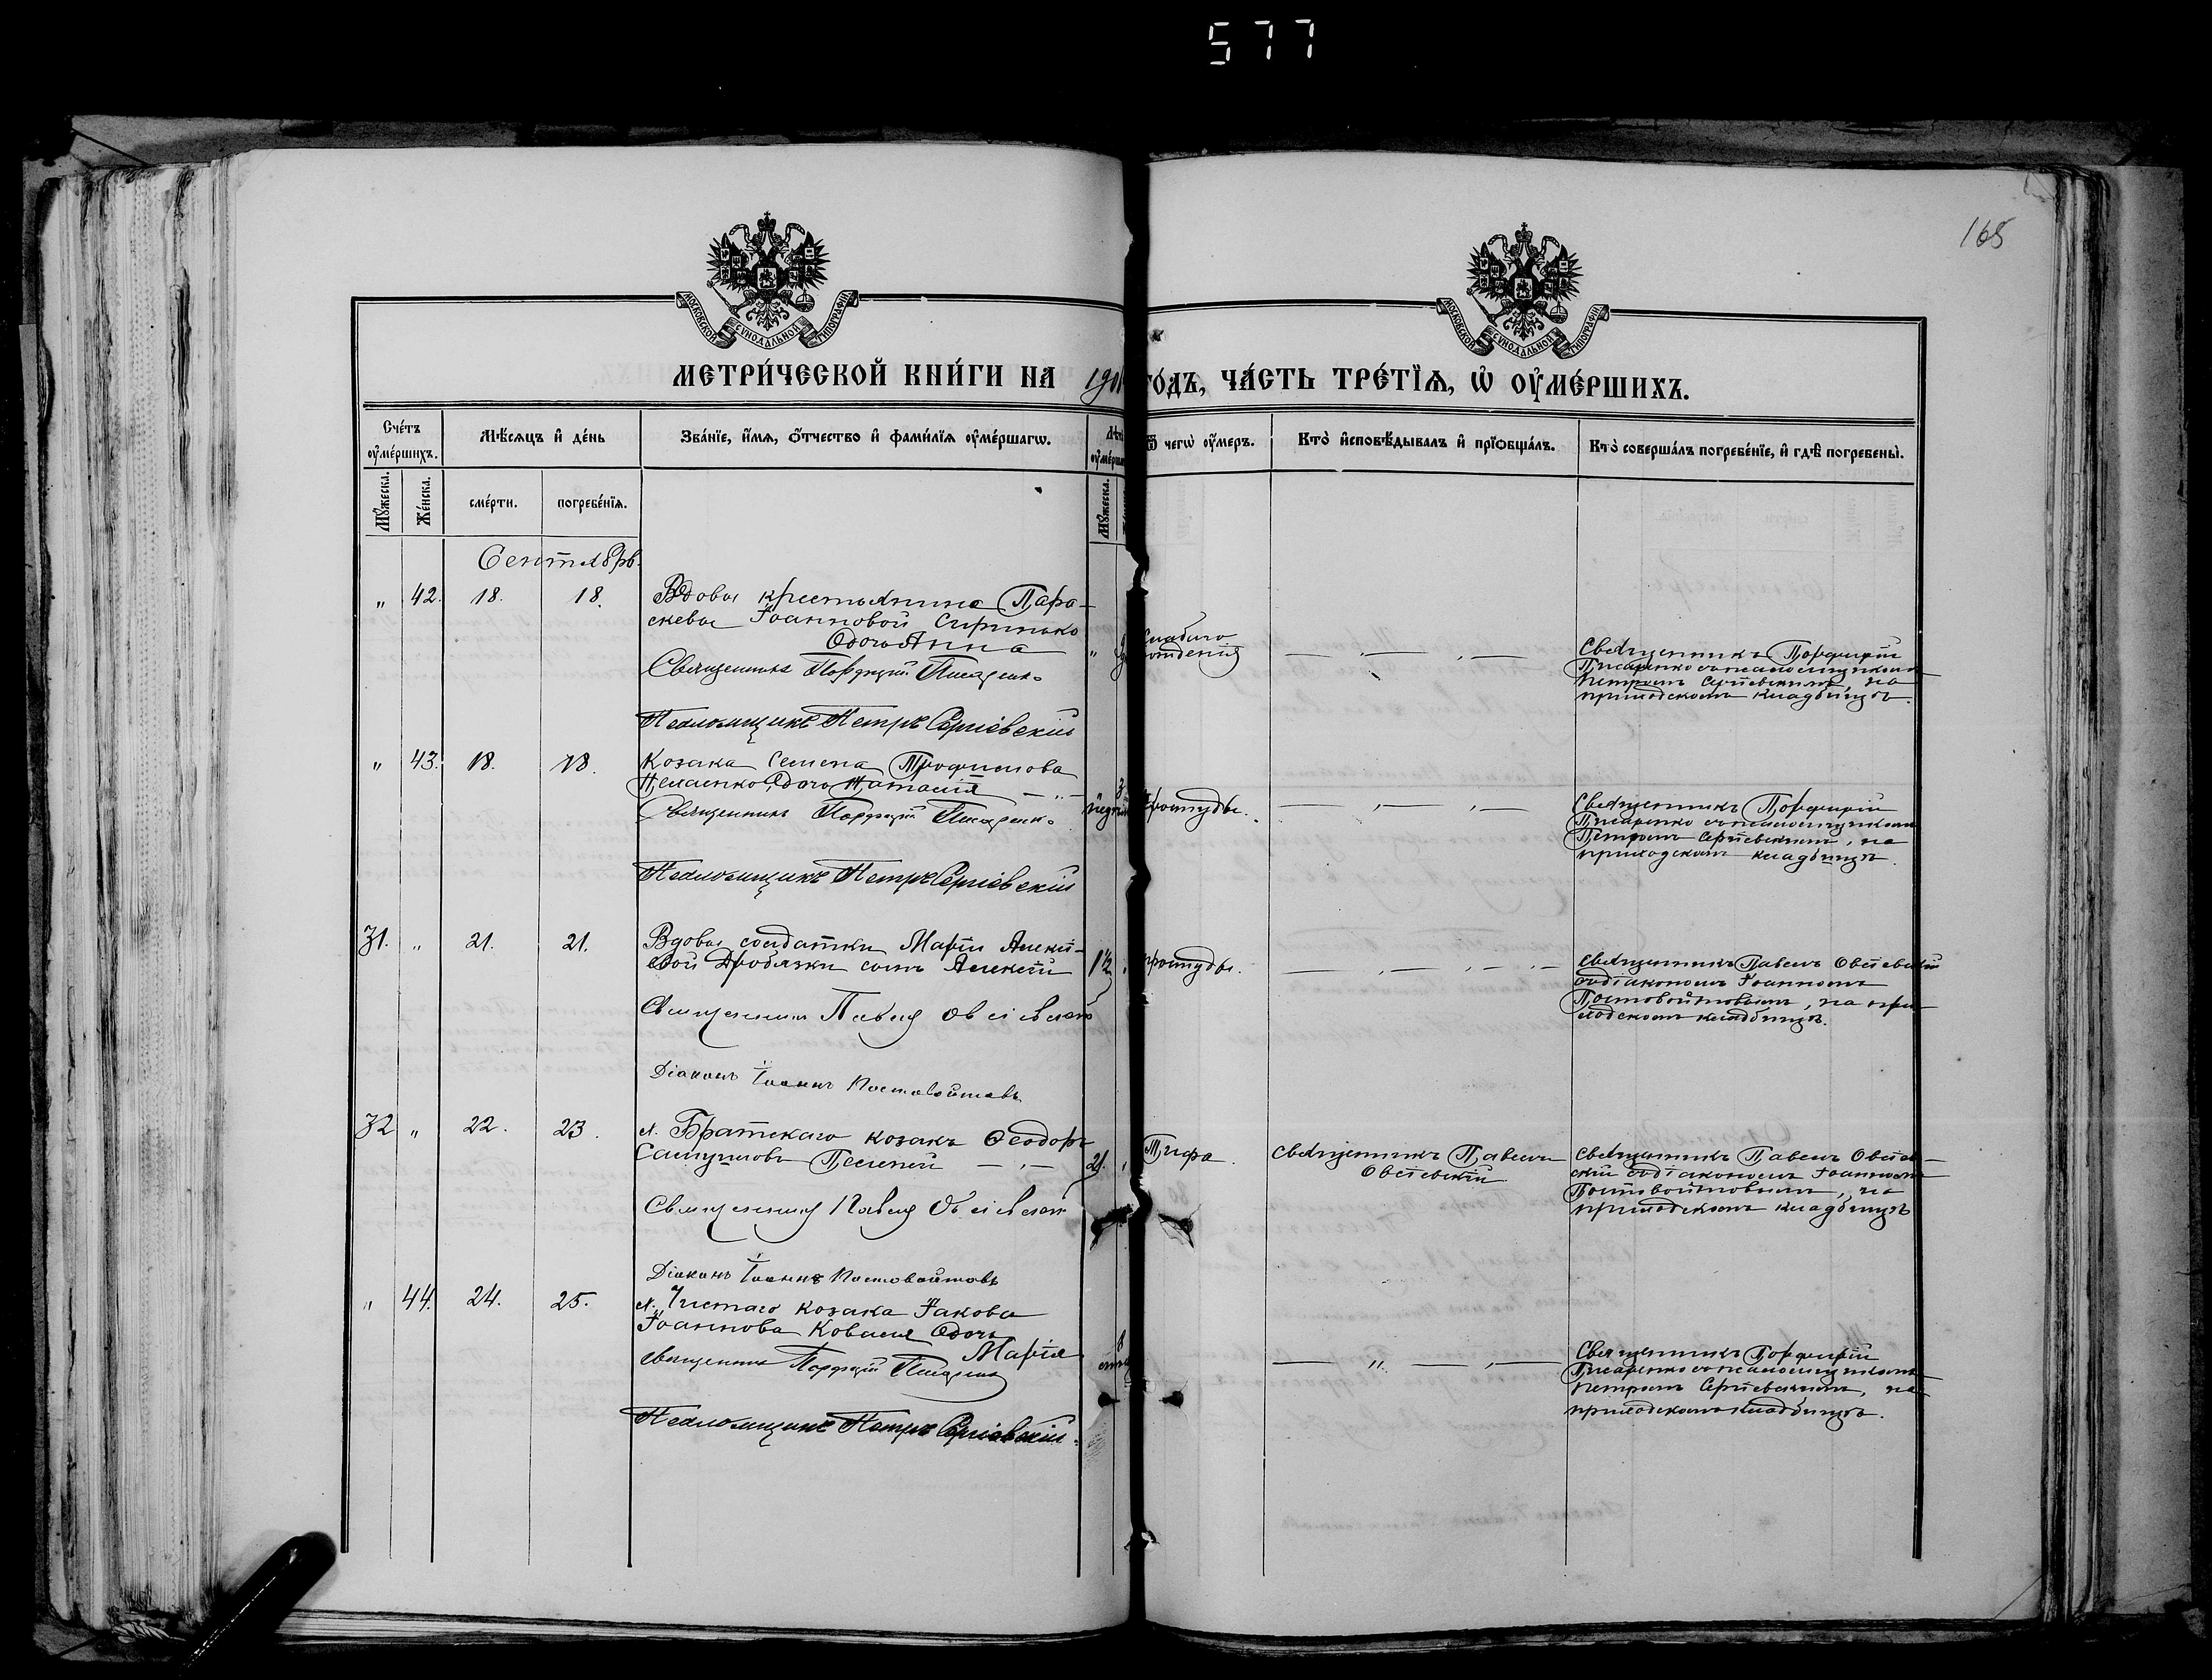 577
165
МОСКОВСКОЙ СУНОДАЛЬНОЙ ТИПОГРАФІИ
МОСКОВСКОЙ СУНОДАЛЬНОЙ ТИПОГРАФІИ
МЕТРИ́ЧЕСКОЙ КНИ́ГИ НА 190
ГО́ДЪ, ЧА́СТЬ ТРЕ́ТЇѦ, Ѡ҆ ОУ҆МЕ́РШИХЪ.
Сче́тъ оу҆ме́ршихъ.
Мѣ́сяцъ и҆ де́нь
Зва́нїе, и҆́мѧ, ѻ҆́тчество и҆ фами́лїѧ оу҆ме́ршагѡ.
Ѿ чегѡ̀ оу҆́меръ.
Кто̀ и҆сповѣ́дывалъ и҆ прїѡбща́лъ.
Кто̀ соверша́лъ погребе́нїе, и҆ гдѣ̀ погребены̀.
Му́жеска.
Же́нска.
сме́рти.
погребе́нїѧ.
Му́жеска.
Сентябрь.
" 42. 18. 18.
Вдовы крестьянина Пара-
скевы Іоанновой Сиринько
дочь Анна
Священникъ Порфирій Писаренко
Псаломщикъ Петръ Сергіевскій
Священникъ Порфирій
Писаренко съ псаломщикомъ
Петромъ Сергіевскимъ, на
приходскомъ кладбищѣ.
" 43. 18. 18.
Козака Семена Трофимова
дочь Наталія
Священникъ Порфирій Писаренко
Псаломщикъ Петръ Сергіевскій
простуды.
Священникъ Порфирій
Писаренко съ псаломщикомъ
Петромъ Сергіевскимъ, на
приходскомъ кладбищѣ.
31. " 21. 21.
Вдовы солдатки Маріи Алексі-
евой Дробязки сынъ Алексій
1½
Священникъ Павелъ Овсіевскій
Діаконъ Іоаннъ Постовойтовъ
простуды.
Священникъ Павелъ Овсіевскій
съ діакономъ Іоанномъ
Постовойтовымъ, на при-
ходскомъ кладбищѣ.
32 " 22. 23.
х. Братскаго козакъ Ѳеодоръ
Самуиловъ
21.
Священникъ Павелъ Овсіевскій
Діаконъ Іоаннъ Постовойтовъ
Тифа.
Священникъ Павелъ
Овсіевскій
Священникъ Павелъ Овсіев-
скій съ діакономъ Іоанномъ
Постовойтовымъ, на
приходскомъ кладбищѣ
" 44. 24. 25.
х. Чистаго козака Іакова
Іоаннова Коваля дочь
Марія
Священникъ Порфирій Писаренко
Псаломщикъ Петръ Сергіевскій.
Священникъ Порфирій
Писаренко съ псаломщикомъ
Петромъ Сергіевскимъ, на
приходскомъ кладбищѣ.